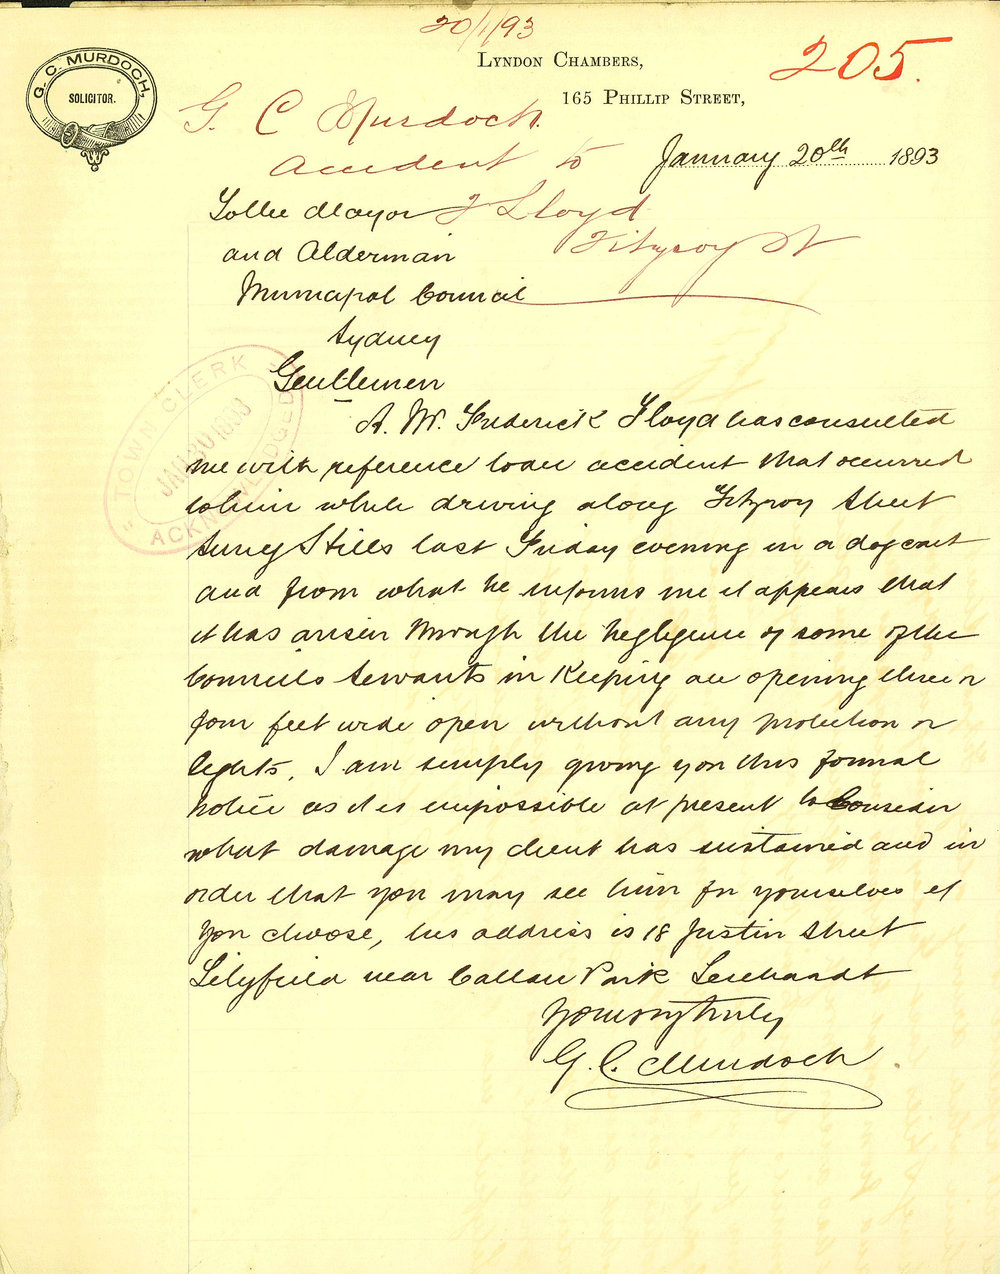 20/1/93
LYNDON CHAMBERS,
205.
165 PHILLIP STREET,
G. C. MURDOCH,
SOLICITOR.
G. C Murdoch.
Accident to
F Lloyd
Fitzroy St
January 20th 1893
To the Mayor
and Alderman
Municipal Council
Sydney
TOWN CLERK
JAN 20 1893
ACKNOWLEDGED
Gentlemen
A. Mr. Frederick Floyd has consulted
me with reference to an accident that occurred
to him while driving along Fitzroy Street
Surry Hills last Friday evening in a dog cart
and from what he informs me it appears that
it has arisen through the negligence of some of the
Councils Servants in Keeping an opening three or
four feet wide open without any protection or
lights. I am simply giving you this formal
notice as it is impossible at present to Consider
what damage my client has sustained and in
order that you may see him for yourselves if
you choose, his address is 18 Justin Street
Lilyfield near Callan Park Leichardt
Yours very truly
G. C. Murdoch